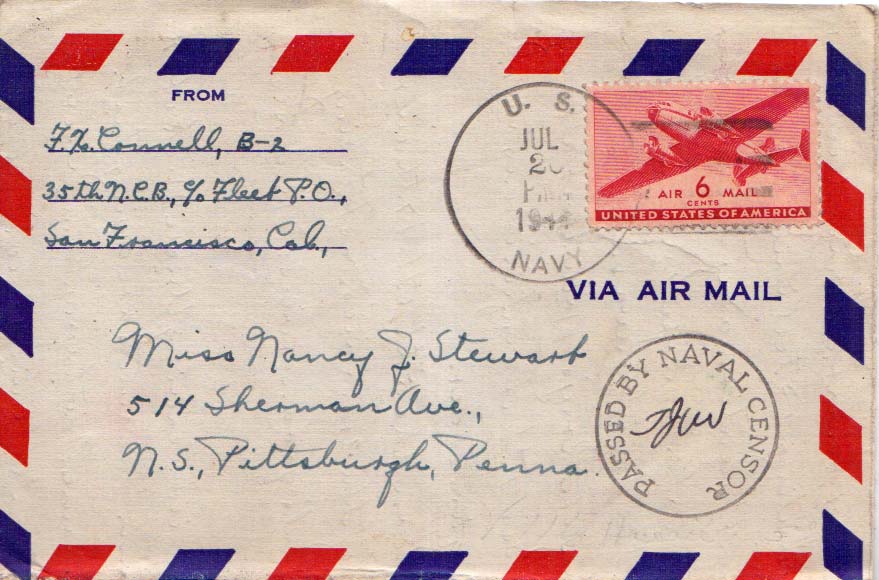 FROM
F.X. Connell, B-2
35th N.C.B., c/o Fleet P.O.,
San Francisco, Cal.,
U. S.
JUL
1944
NAVY
AIR 6 MAIL
CENTS
UNITED STATES OF AMERICA
VIA AIR MAIL
Miss Nancy J. Stewart
514 Sherman Ave.,
N.S., Pittsburgh, Penna.
PASSED BY NAVAL CENSOR